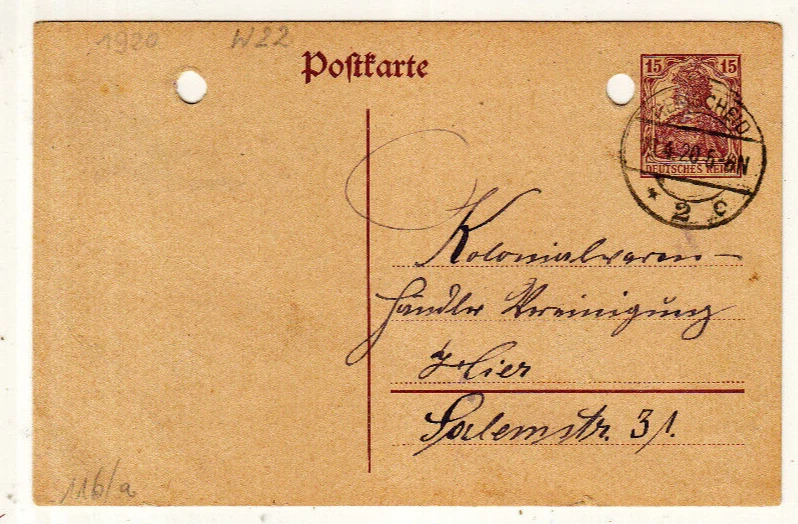 1920 W22
Postkarte
15 15
DEUTSCHES REICH
4.20.5-6N
* 2 c
Kolonialwaren-
händler Vereinigung
Hier
Salemstr. 31.
116/a